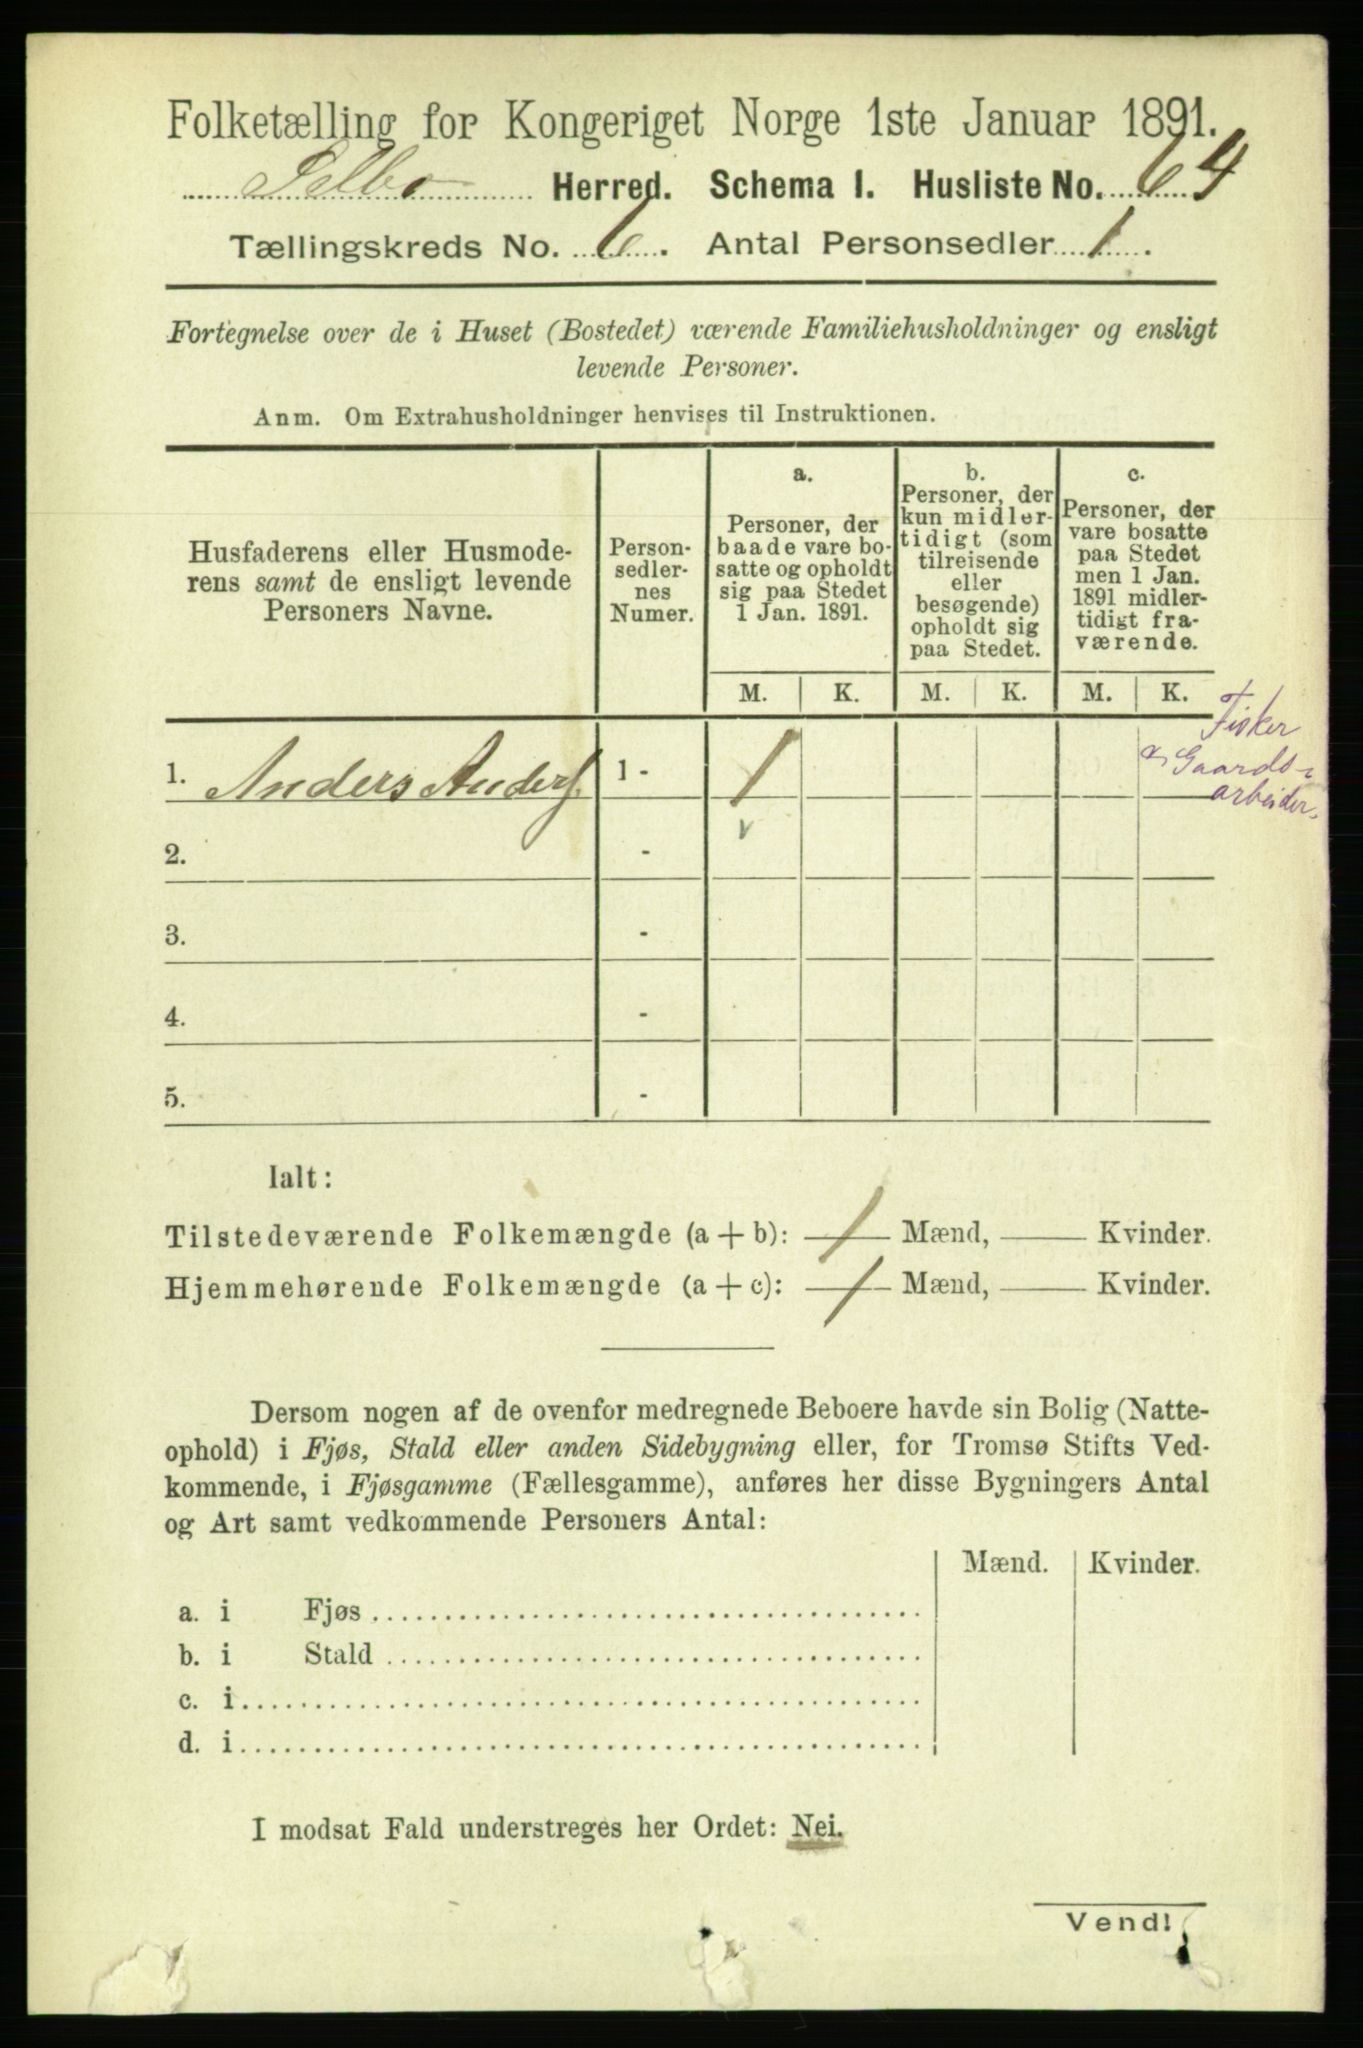 Folketælling for Kongeriget Norge 1ste Januar 1891.
Selbo Herred. Schema I. Husliste No. 64
Tællingskreds No. 6. Antal Personsedler 1.
Fortegnelse over de i Huset (Bostedet) værende Familiehusholdninger og ensligt
levende Personer.
Anm. Om Extrahusholdninger henvises til Instruktionen.
Husfaderens eller Husmode-
rens samt de ensligt levende
Personers Navne.
Person-
sedler-
nes
Numer.
a.
Personer, der
baade vare bo-
satte og opholdt
sig paa Stedet
1 Jan. 1891.
b.
Personer, der
kun midler-
tidigt (som
tilreisende
eller
besøgende)
opholdt sig
paa Stedet.
c.
Personer, der
vare bosatte
paa Stedet
men 1 Jan.
1891 midler-
tidigt fra-
værende.
M. K. M. K. M. K.
Fisker
& Gaards-
arbeider.
1. Anders Anders. 1 - 1
2. -
3. -
4. -
5. -
Ialt:
Tilstedeværende Folkemængde (a + b): 1 Mænd, — Kvinder.
Hjemmehørende Folkemængde (a + c): 1 Mænd, — Kvinder.
Dersom nogen af de ovenfor medregnede Beboere havde sin Bolig (Natte-
ophold) i Fjøs, Stald eller anden Sidebygning eller, for Tromsø Stifts Ved-
kommende, i Fjøsgamme (Fællesgamme), anføres her disse Bygningers Antal
og Art samt vedkommende Personers Antal:
Mænd. Kvinder.
a. i Fjøs
b. i Stald
c. i
d. i
I modsat Fald understreges her Ordet: Nei.
Vend!